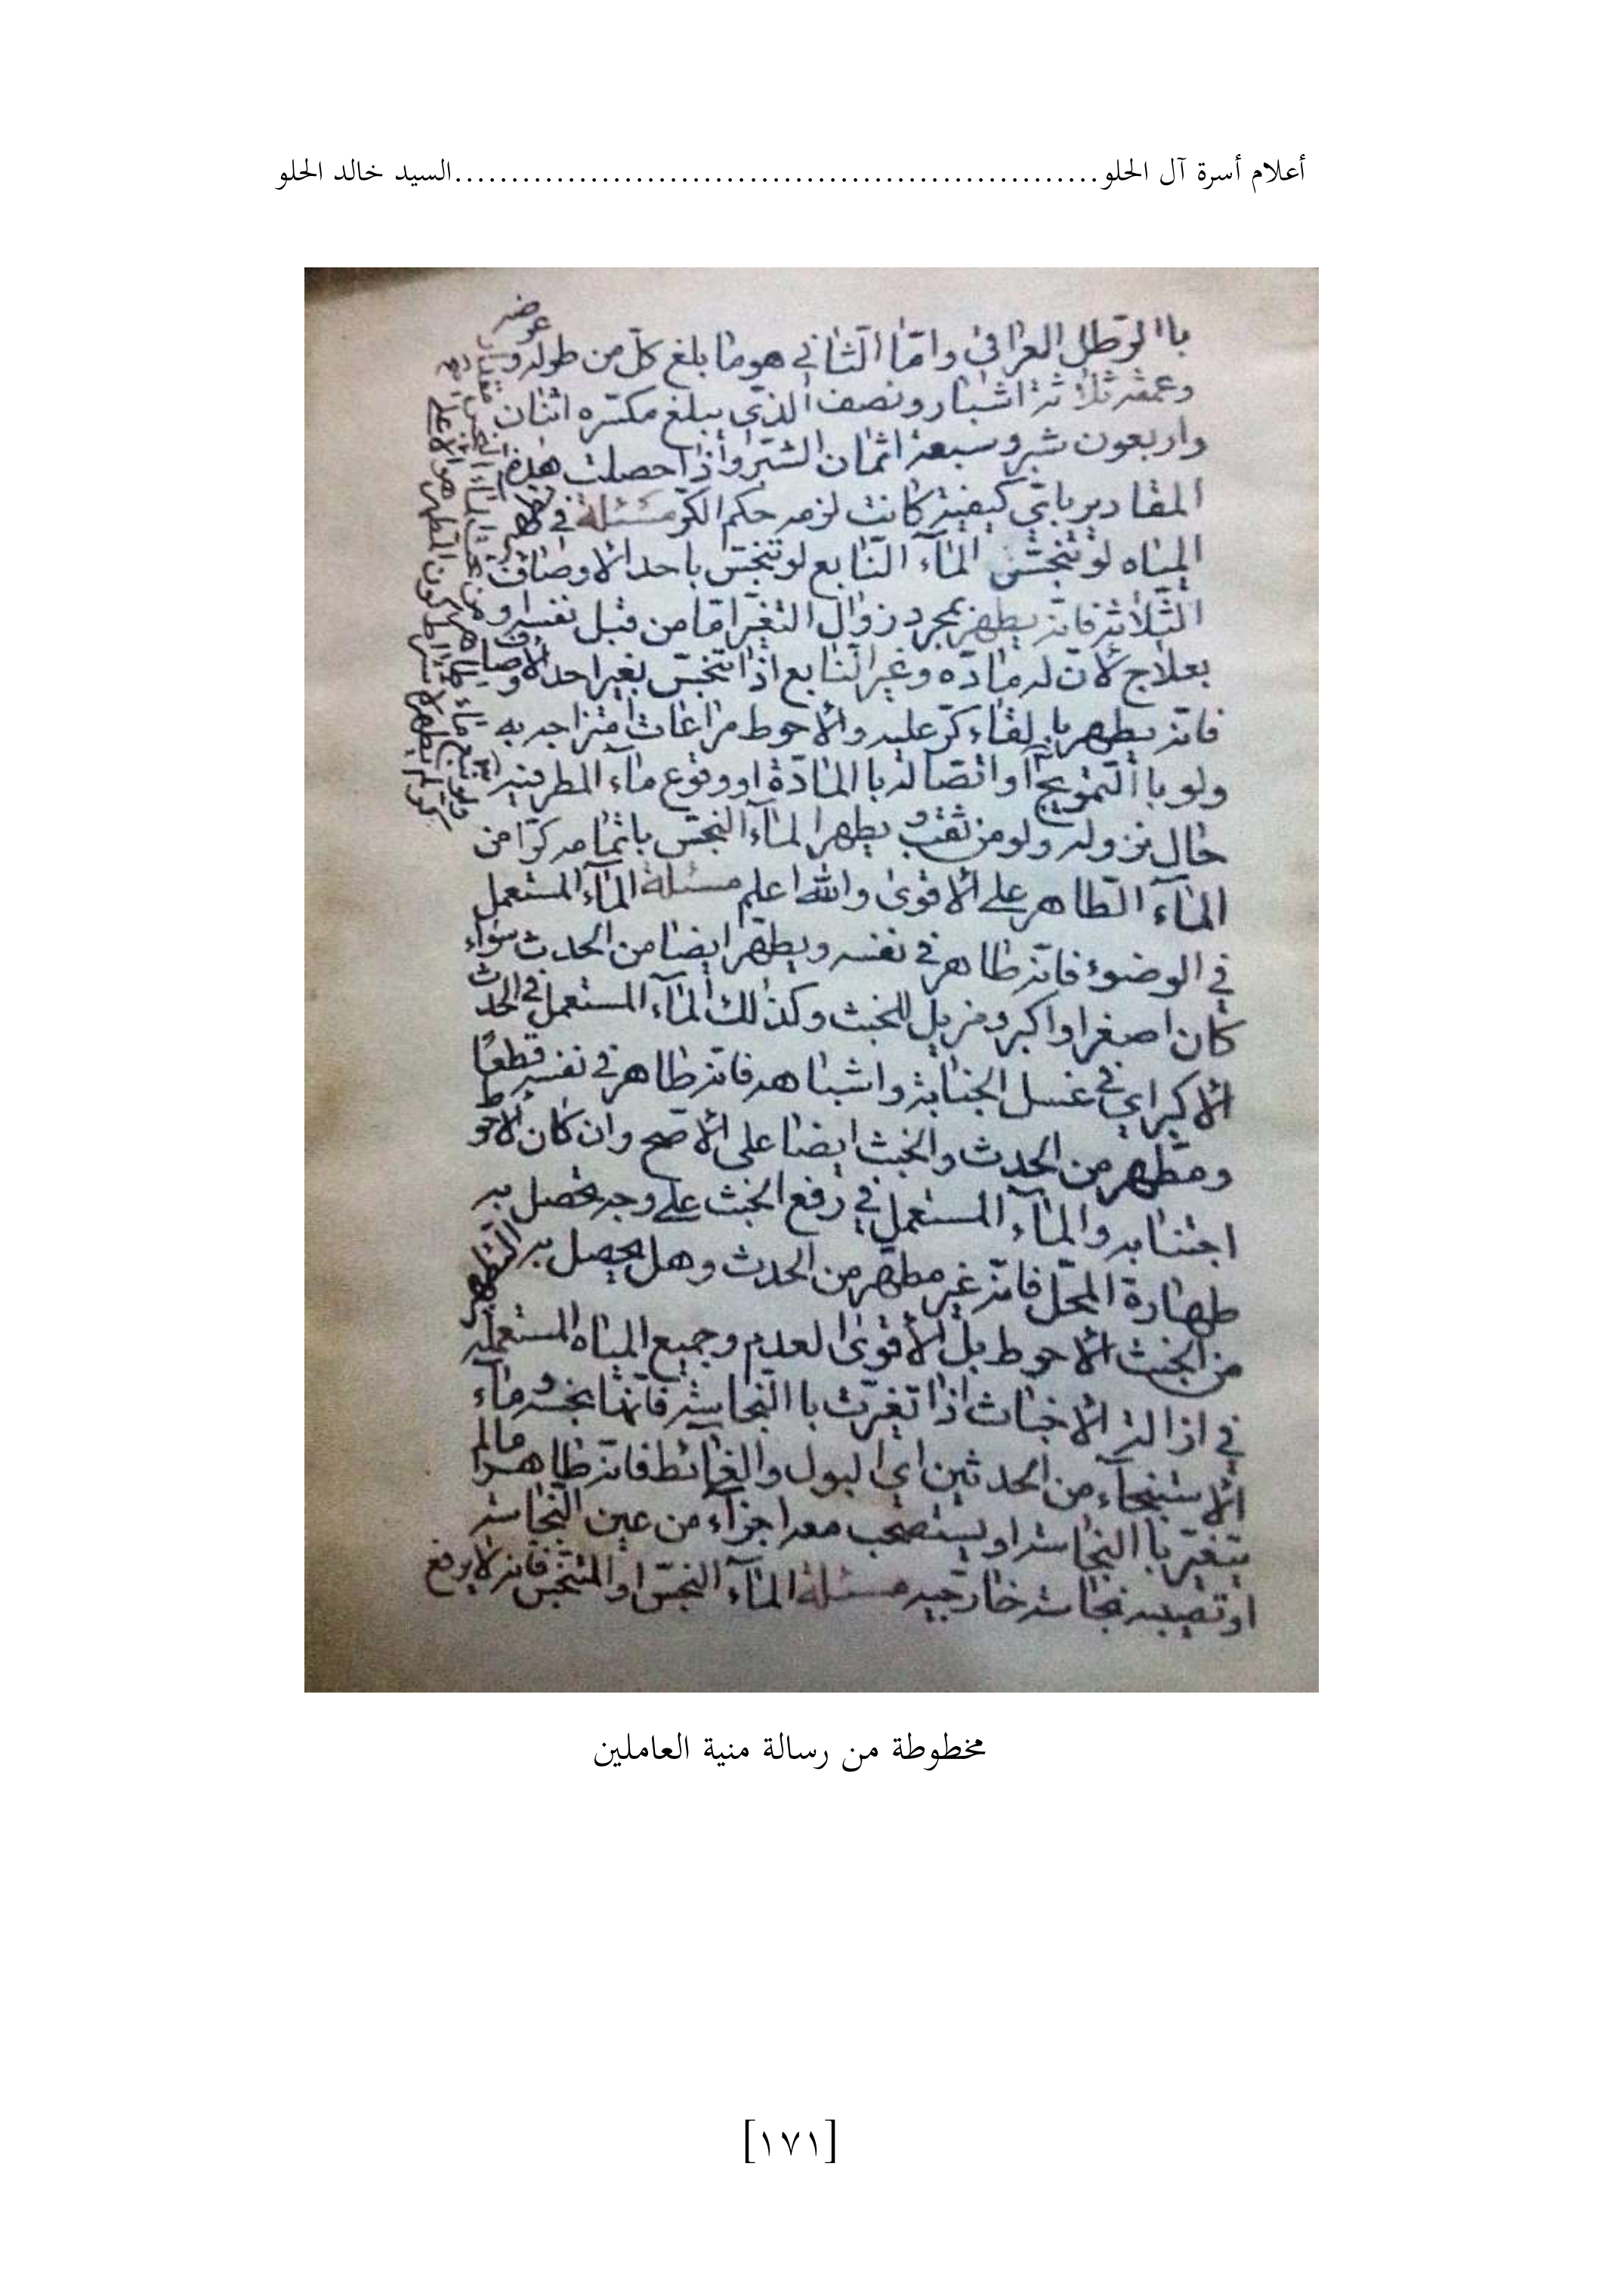 أعلام أسرة آل الحلو.........................................................السيد خالد الحلو
باالرّطل العراقی وامّا الثانی هو ما بلغ كلّ من طوله وعرضه
وعمقه ثلاثة اشبار ونصف الذی يبلغ مكسّره اثنان
واربعون شبر وسبعة اثمان الشبر واذا حصلت هذه
المقادير بایّ كيفية كانت لزمه حكم الكرّ مسئلة فی تطهير
المياه لو تنجّس المآء النّابع لو تنجّس باحد الاوصاف
الثّلاثة فانّه يطهر بمجرد زوال التغيّر امّا من قبل نفسه او
بعلاج لانّ له مادّه وغير النّابع اذا تنجّس بغير احد الاوصاف
فانّه يطهر بالقاء كرّ عليه والاحوط مراعات امتزاجه به
ولو باالتمويج او اتّصاله باالمادّة او وقوع مآء المطر فيه
حال نزوله ولو من ثقب يطهر المآء النجس باتمامه كرّا من
المآء الطّاهر علی الاقوی والله اعلم مسئلة المآء المستعمل
فی الوضوء فانّه طاهر فی نفسه ويطهّر ايضا من الحدث سواء
كان اصغر او اكبر ومزيل للخبث وكذلك المآء المستعمل فی الحدث
الاكبر ای فی غسل الجنابة واشباهه فانّه طاهر فی نفسه قطعًا
ومطهّر من الحدث والخبث ايضا علی الاصح وان كان الاحوط
اجتنابه والمآء المستعمل فی رفع الخبث علی وجه يحصل به
طهارة المحّل فانّه غير مطهّر من الحدث وهل يحصل به التطهير
من الخبث الاحوط بل الاقوی العدم وجميع المياه المستعمله
فی ازالة الاخباث اذا تغيّرت باالنجاسة فانّها نجسه ومآء
الاستنجآء من الحدثين ای البول والغائط فانّه طاهر ما لم
يتغيّر باالنجاسة او يستصحب معه اجزآء من عين النجاسة
او تصيبه نجاسة خارجيه مسئلة المآء النجس او المتنجّس فانّه لا يرفع
مخطوطة من رسالة منية العاملين
[١٧١]